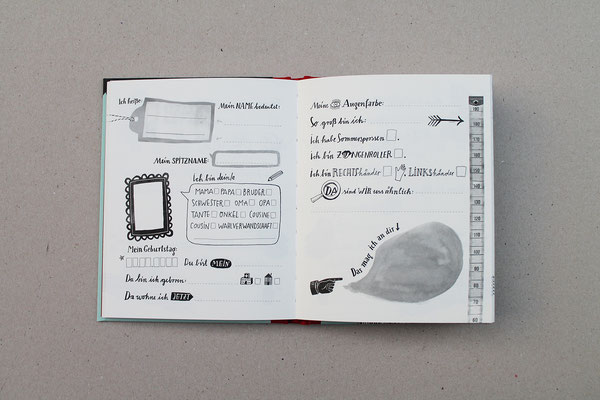 Ich heiße:
Mein NAME bedeutet:
Mein SPITZNAME:
Ich bin dein/e
MAMA PAPA BRUDER
SCHWESTER OMA OPA
TANTE ONKEL COUSINE
COUSIN WAHLVERWANDSCHAFT
Mein Geburtstag:
Du bist MEIN
Da bin ich geboren:
Da wohne ich JETZT
Meine Augenfarbe:
So groß bin ich:
Ich habe Sommersprossen
Ich bin ZUNGENROLLER
Ich bin RECHTShänder LINKShänder
DA sind WIR uns ähnlich:
Das mag ich an dir